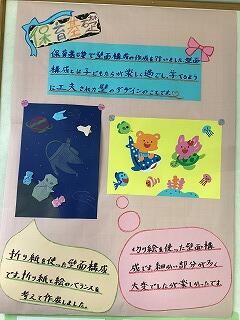 保育基礎
保育基礎で壁面構成の作成を行いました。壁面
構成とは子どもたちが楽しく過ごし、育てるよう
に工夫された壁のデザインのことです♡
折り紙を使った壁面構成
です。折り紙と絵のバランスを
考えて作成しました。
切り絵を使った壁面構
成です。細かい部分が多く
大変でしたが楽しかったです。